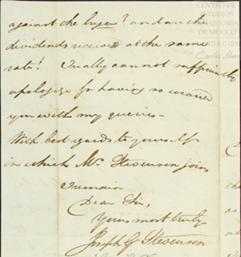 against the buyer? and on the
dividends received at the same
rate? I really cannot sufficiently
apologise for having so
you with my queries –
With best regards to yourself
in which Mrs. Stevenson joins
I remain
Dear Sir,
Yours most truly
Joseph G Stevenson